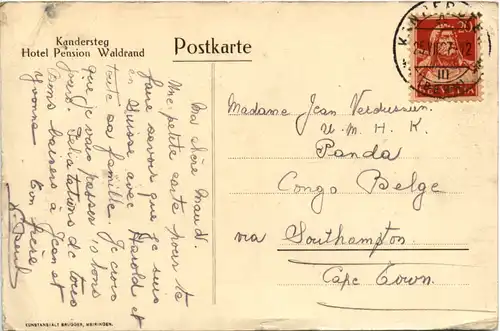 Kandersteg
Hotel Pension Waldrand
Postkarte
KANDERSTEG
HELVETIA
10
Ma chère Maud.
Une petite carte pour te
faire savoir que je suis
en Suisse avec Harold et
toute sa famille. Je crois
que je vais passer 10 bons
jours. Félicitations de tous
Bons baisers à Jean et
Yvonne
Ton frère
Madame Jean Verdussen
U. M. H. K.
Panda
Congo Belge
via Southampton
Cape Town.
KUNSTANSTALT BRÜGGER, MEIRINGEN.